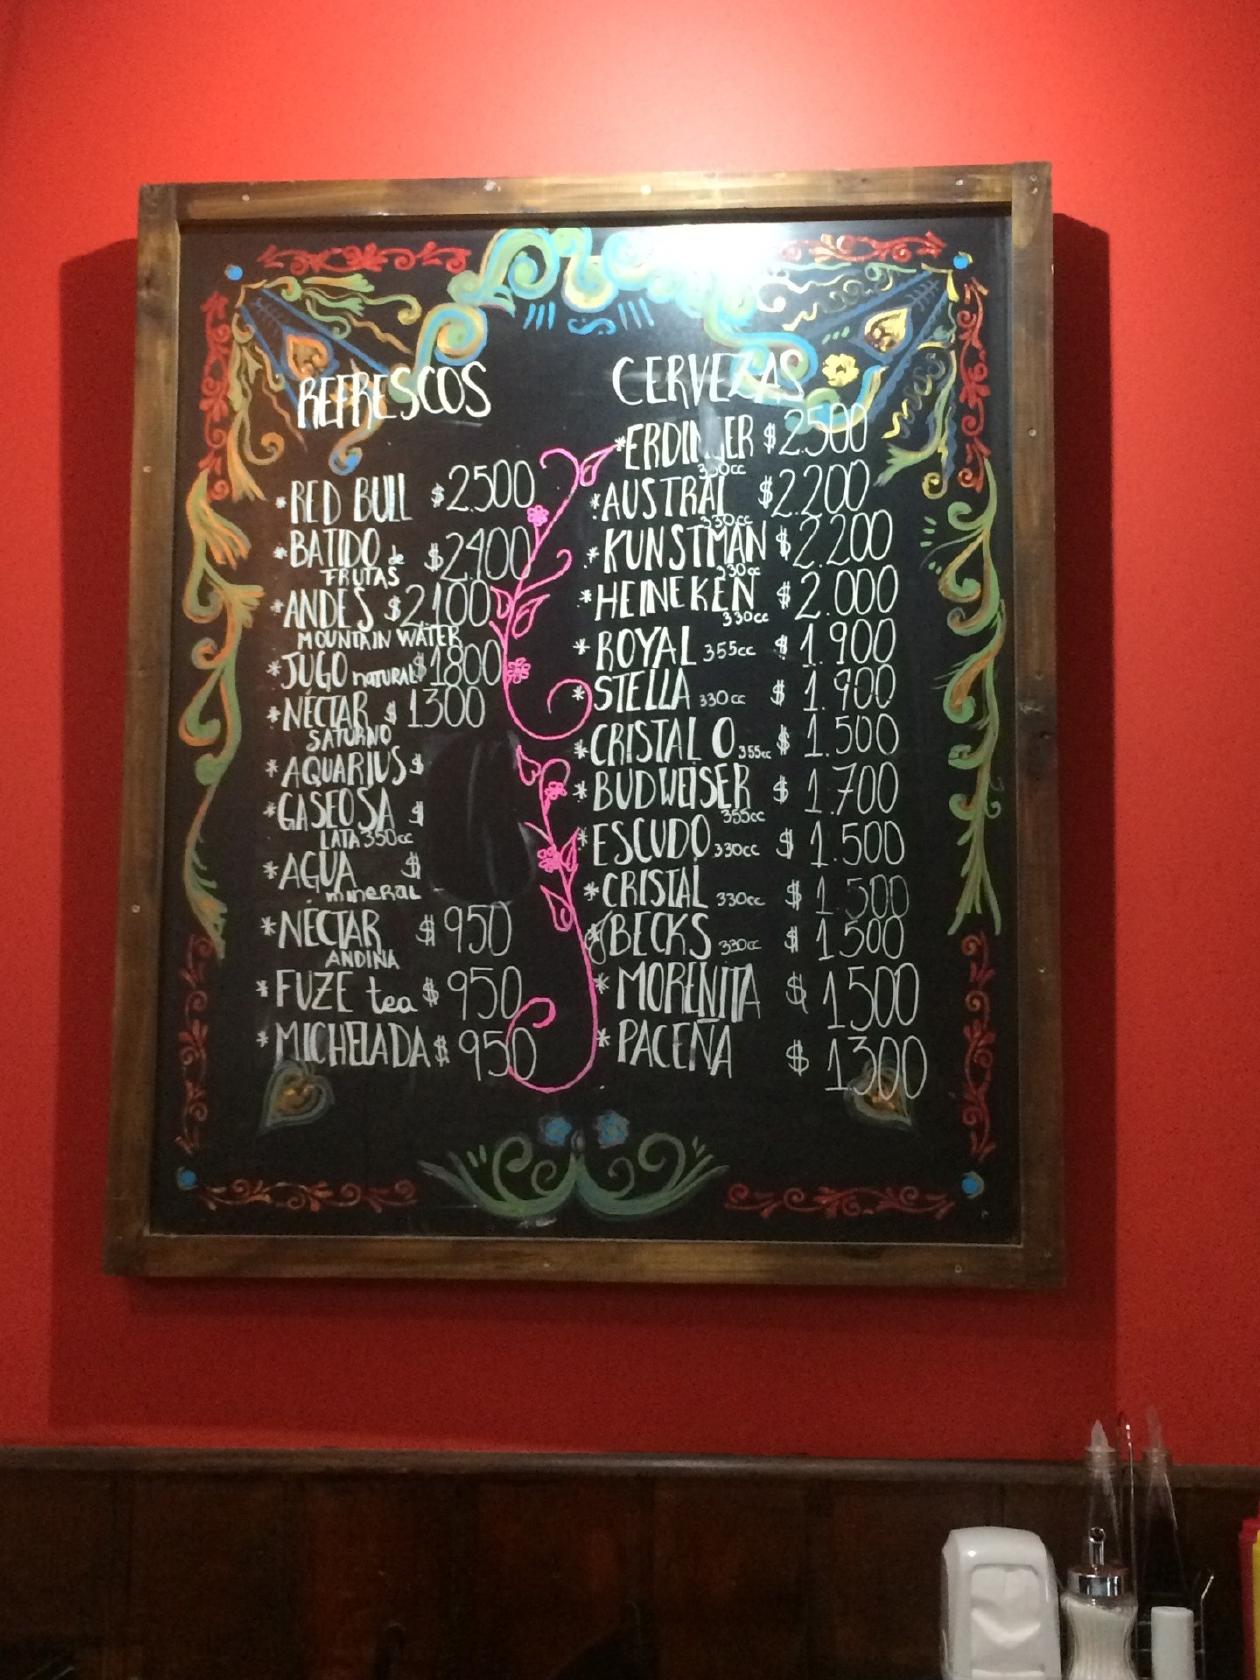 REFRESCOS
*RED BULL $2500
*BATIDO de $2.400
FRUTAS
*ANDES $2100
MOUNTAIN WATER
*JUGO natural $1800
*NÉCTAR $1300
SATURNO
*AQUARIUS $
*GASEOSA $
LATA 350cc
*AGUA $
mineral
*NÉCTAR $950
ANDINA
*FUZE tea $950
*MICHELADA $950
CERVEZAS
*ERDINGER $2.500
330cc
*AUSTRAL $2.200
330cc
*KUNSTMAN $2.200
330cc
*HEINEKEN $2.000
330cc
*ROYAL 355cc $1.900
*STELLA 330cc $1.900
*CRISTAL 0 355cc $1.500
*BUDWEISER $1.700
355cc
*ESCUDO 330cc $1.500
*CRISTAL 330cc $1.500
*BECKS 330cc $1.500
*MOREÑITA $1500
*PACEÑA $1300